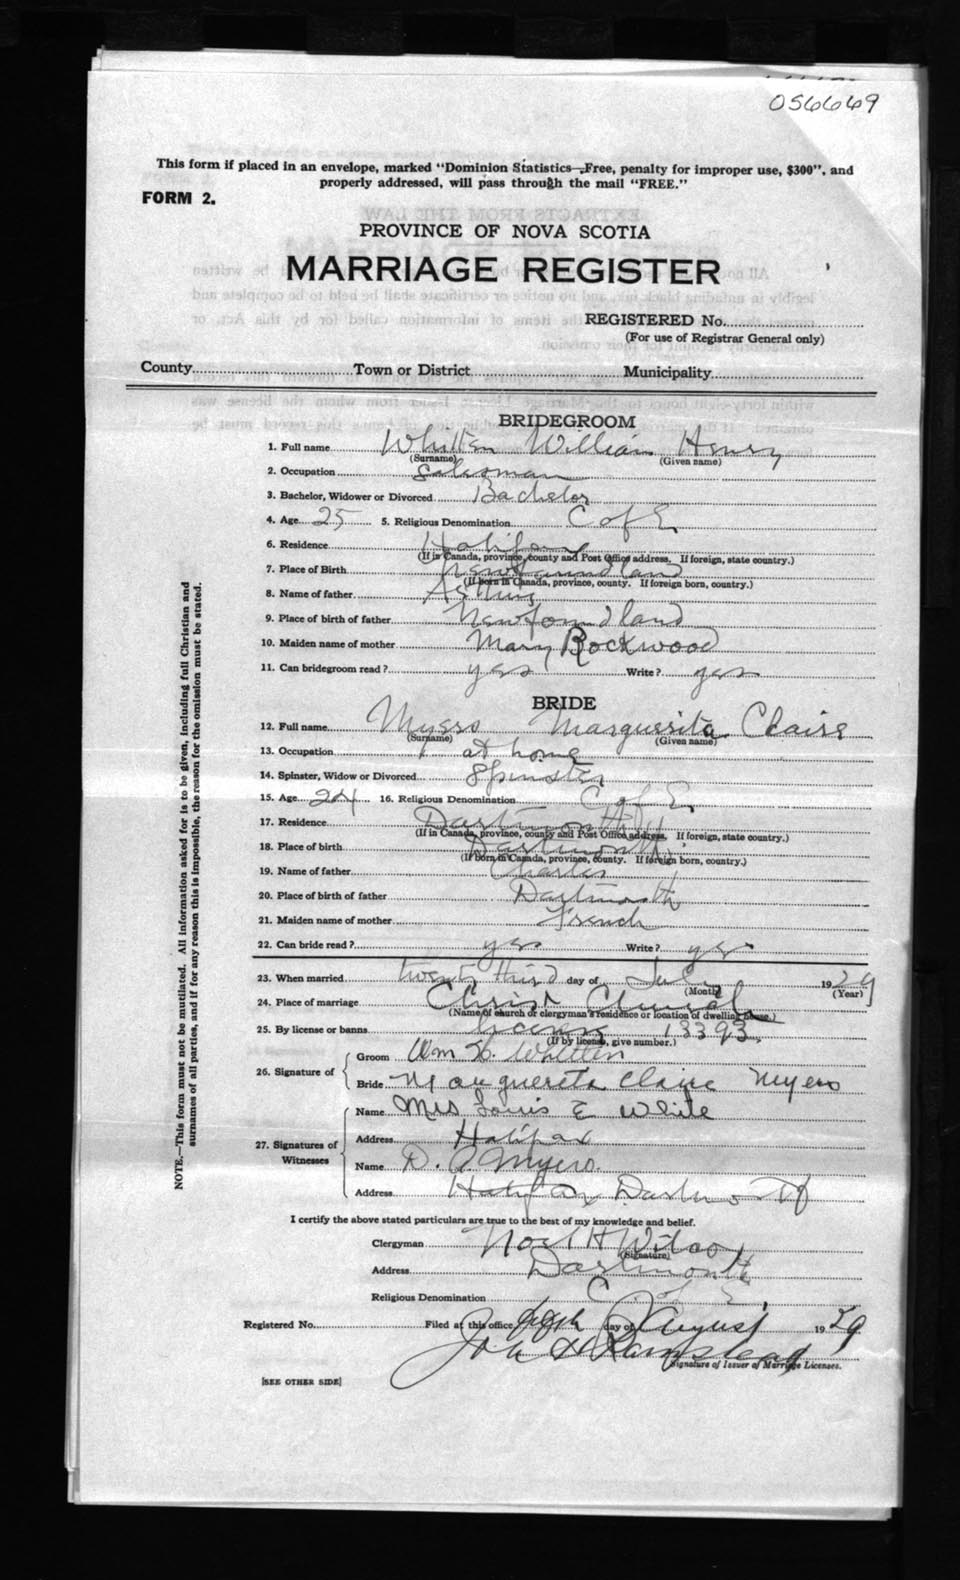 056669
This form if placed in an envelope, marked "Dominion Statistics—Free, penalty for improper use, $300", and
properly addressed, will pass through the mail "FREE."
FORM 2.
PROVINCE OF NOVA SCOTIA
MARRIAGE REGISTER
REGISTERED No.
(For use of Registrar General only)
County Town or District Municipality
BRIDEGROOM
1. Full name Whitten William Henry
(Surname) (Given name)
2. Occupation Salesman
3. Bachelor, Widower or Divorced Bachelor
4. Age 25 5. Religious Denomination C of E
6. Residence Halifax
(If in Canada, province, county and Post Office address. If foreign, state country.)
7. Place of Birth Newfoundland
(If born in Canada, province, county. If foreign born, country.)
8. Name of father Arthur
9. Place of birth of father Newfoundland
10. Maiden name of mother Mary Rockwood
11. Can bridegroom read? yes Write? yes
BRIDE
12. Full name Myers Marguerita Claire
(Surname) (Given name)
13. Occupation at home
14. Spinster, Widow or Divorced Spinster
15. Age 24 16. Religious Denomination C of E
17. Residence Dartmouth
(If in Canada, province, county and Post Office address. If foreign, state country.)
18. Place of birth Dartmouth
(If born in Canada, province, county. If foreign born, country.)
19. Name of father Charles
20. Place of birth of father Dartmouth
21. Maiden name of mother French
22. Can bride read? yes Write? yes
23. When married twenty third day of 1929
(Month) (Year)
24. Place of marriage Christ Church
(Name of church or clergyman's residence or location of dwelling house.)
25. By license or banns license 13393
(If by license, give number.)
26. Signature of
Groom Wm H. Whitten
Bride Marguereta Claire Myers
27. Signatures of Witnesses
Name Mrs Louis E White
Address Halifax
Name D. Myers.
Address Halifax Dartmouth
I certify the above stated particulars are true to the best of my knowledge and belief.
Clergyman Noel H Wilcox
(Signature)
Address Dartmouth
Religious Denomination C. of E.
Registered No. Filed at this office day of August 1929
Signature of Issuer of Marriage Licenses.
[SEE OTHER SIDE]
NOTE.—This form must not be mutilated. All information asked for is to be given, including full Christian and
surnames of all parties, and if for any reason this is impossible, the reason for the omission must be stated.